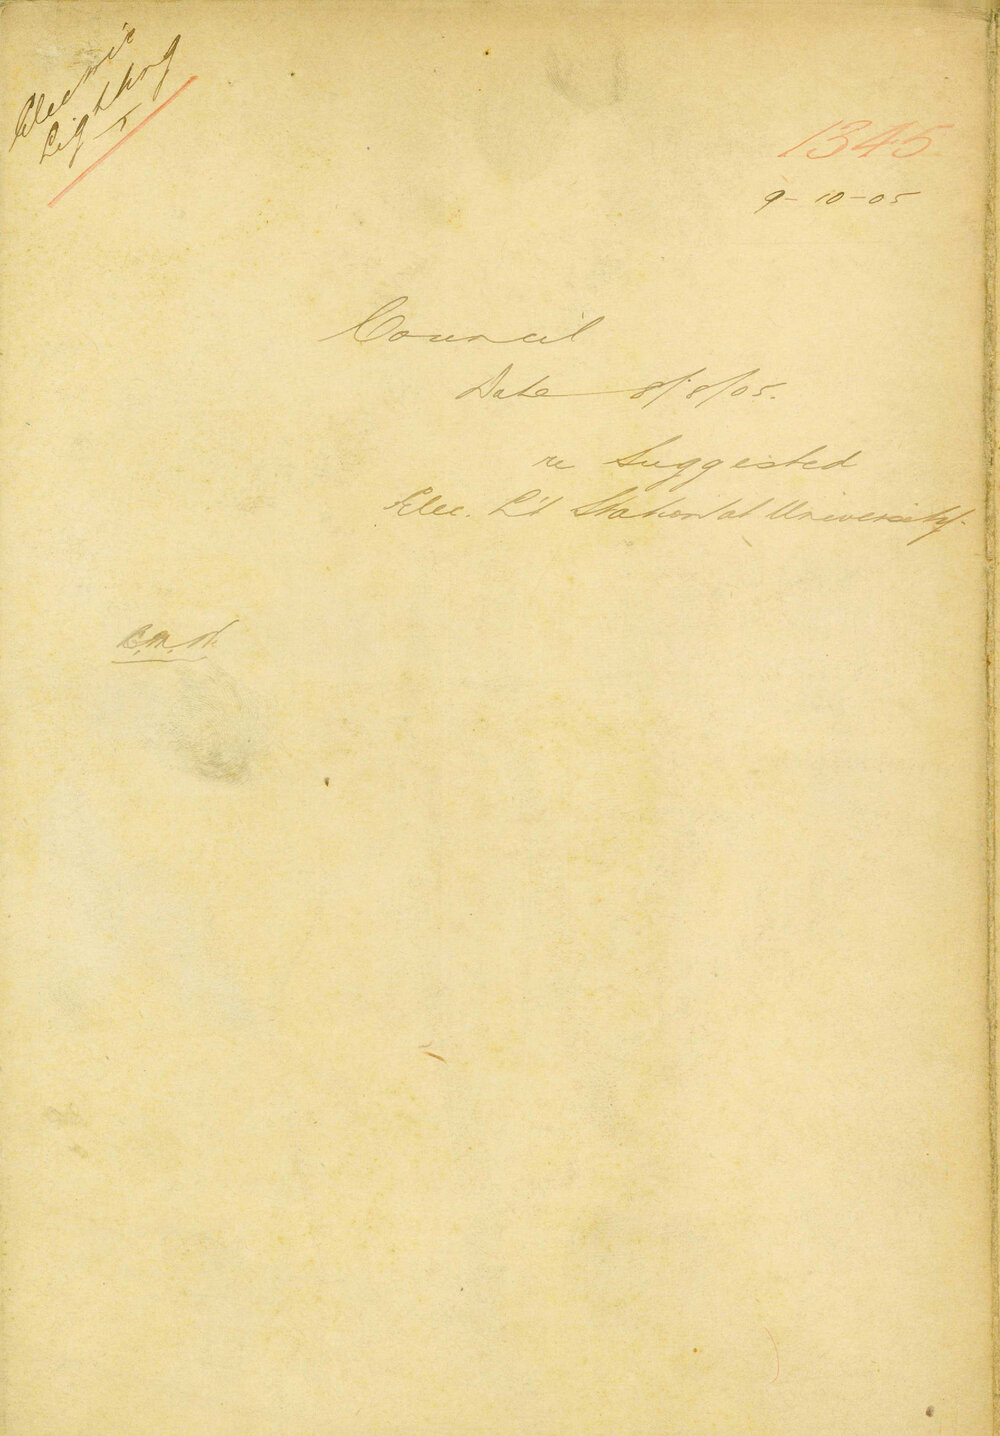 Electric
Lighting
5
1345
9-10-05
Council
Date 8/8/05.
re Suggested
Elec. L't Station at University.